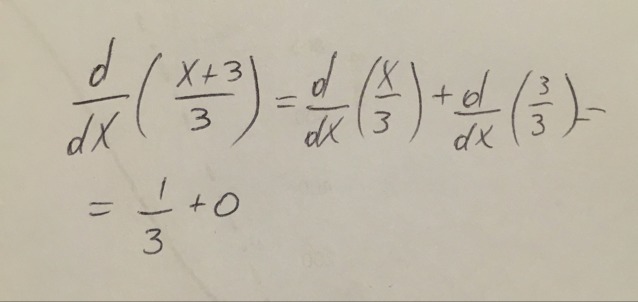 d/dx ( (x+3)/3 ) = d/dx ( x/3 ) + d/dx ( 3/3 ) =
= 1/3 + 0